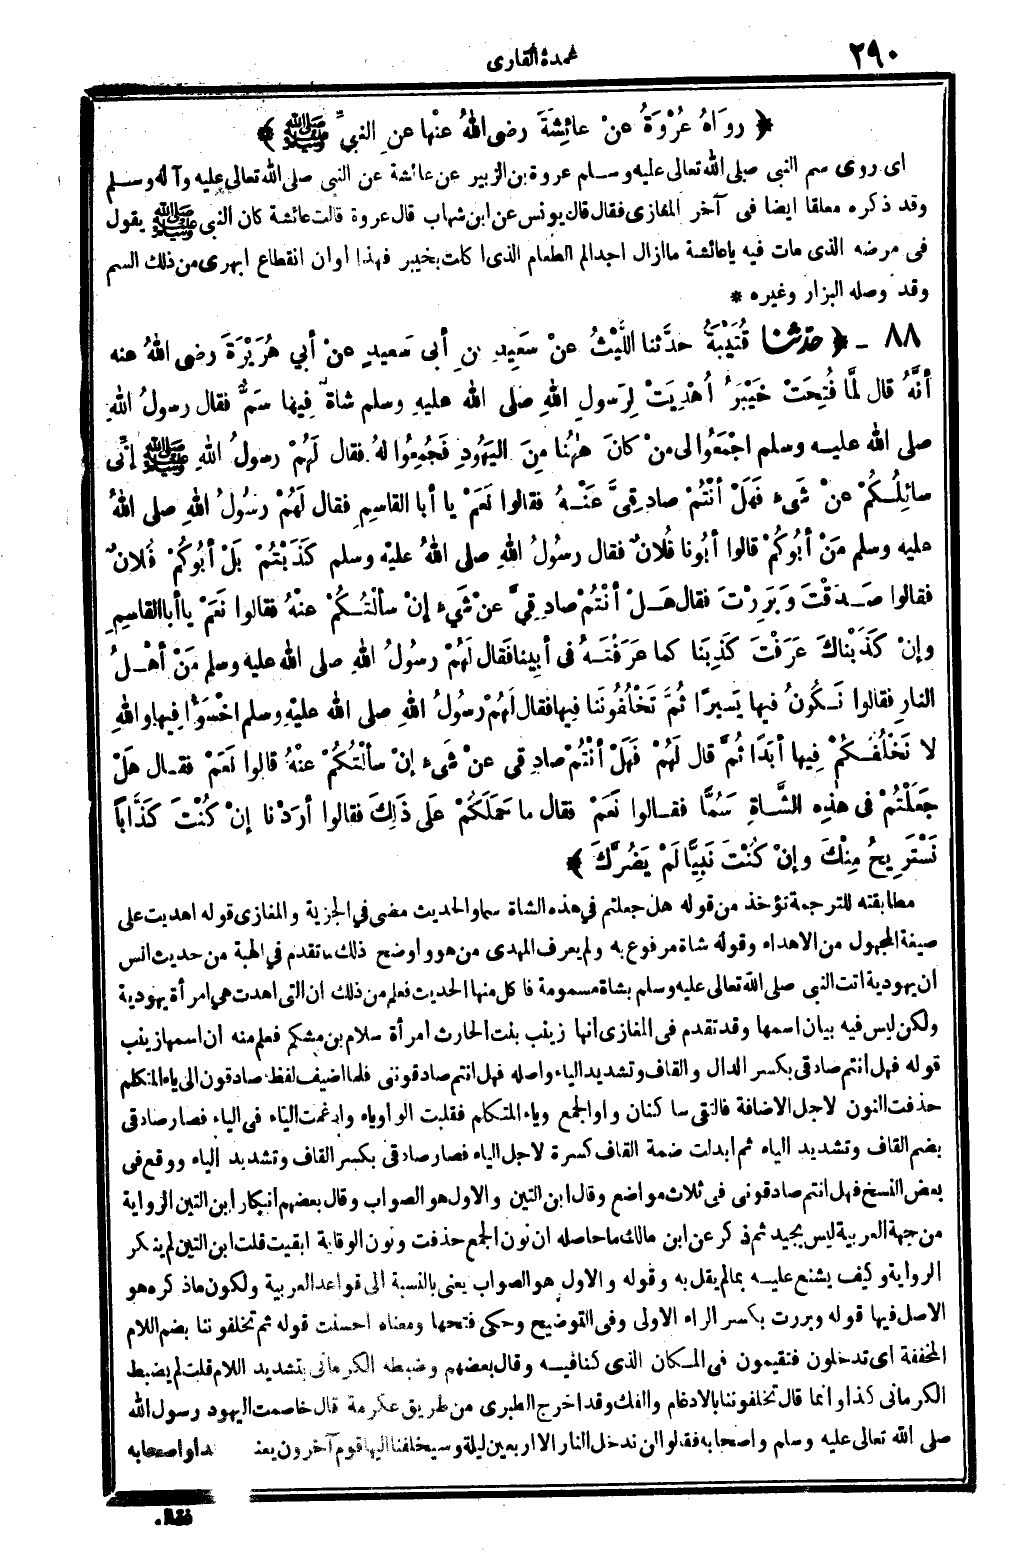 ٢٩٠
عمدة القارى
﴿ رواهُ عُرْوَةُ عنْ عائِشَةَ رضى اللهُ عنْها عنِ النبيِّ ﷺ ﴾
اى روى سم النبى صلى الله تعالى عليه وسلم عروة بن الزبير عن عائشة عن النبى صلى الله تعالى عليه وآله وسلم
وقد ذكره معلقا ايضا فى آخر المغازى فقال قال يونس عن ابن شهاب قال عروة قالت عائشة كان النبى ﷺ يقول
فى مرضه الذى مات فيه ياعائشة ماازال اجد الم الطعام الذى اكلت بخيبر فهذا اوان انقطاع ابهرى من ذلك السم
وقد وصله البزار وغيره *
٨٨ - ﴿ حدثنا قُتَيْبَةُ حدَّثنا اللَّيْثُ عنْ سَعِيدِ بنِ أبى سَعيدٍ عنْ أبي هُرَيْرَةَ رضى اللهُ عنه
أنَّهُ قال لمَّا فُتِحَتْ خَيْبَرُ أُهْدِيَتْ لِرَسولِ اللهِ صلى الله عليهِ وسلم شاةٌ فِيها سَمٌّ فقال رسولُ اللهِ
صلى الله عليه وسلم اجْمَعُوا لى منْ كانَ هٰهُنا مِنَ اليَهُودِ فَجُمِعُوا لهُ فقال لَهُمْ رسولُ اللهِ ﷺ إنِّى
سائِلُكُمْ عنْ شَىْءٍ فَهَلْ أنْتُمْ صادِقِىَّ عَنْهُ فقالوا نَعَمْ يا أبا القاسِمِ فقال لَهُمْ رسُولُ اللهِ صلى اللهُ
عليه وسلم مَنْ أبُوكُمْ قالوا أبُونا فُلانٌ فقال رسولُ اللهِ صلى اللهُ عليْه وسلم كَذَبْتُمْ بَلْ أبُوكُمْ فُلانٌ
فقالوا صَدَقْتَ وَبَرِرْتَ فقال هَلْ أنْتُمْ صادِقِىَّ عنْ شَىْءٍ إنْ سألْتُكُمْ عنْهُ فقالوا نَعَمْ ياأباالقاسِمِ
وإنْ كَذَبْناكَ عرَفْتَ كَذِبَنا كما عرَفْتَهُ فى أبِينا فَقال لَهُمْ رسولُ اللهِ صلى الله عليه وسلم مَنْ أهْلُ
النارِ فقالوا نَكُونُ فيها يَسيرًا ثُمَّ تَخْلُفُونَنا فِيها فقال لَهُمْ رسُولُ اللهِ صلى الله عليْهِ وسلم اخْسَؤُا فِيها واللهِ
لا نَخْلُفُكُمْ فِيها أبَدًا ثُمَّ قال لَهُمْ فَهَلْ أنْتُمْ صادِقِى عنْ شَىْءٍ إنْ سألْتُكُمْ عنْهُ قالوا نَعَمْ فقال هَلْ
جَعَلْتُمْ فى هٰذِهِ الشَّاةِ سَمًّا فقالوا نَعَمْ فقال ما حَمَلَكُمْ علَى ذَلِكَ فقالوا أرَدْنا إنْ كُنْتَ كَذَّاباً
نَسْتَرِيحُ مِنْكَ وإنْ كُنْتَ نَبِيًّا لَمْ يَضُرَّكَ ﴾
مطابقته للترجمة تؤخذ من قوله هل جعلتم في هذه الشاة سما والحديث مضى في الجزية والمغازى قوله اهديت على
صيغة المجهول من الاهداء وقوله شاة مرفوع به ولم يعرف المهدى من هو واوضح ذلك ماتقدم في الهبة من حديث انس
ان يهودية اتت النبى صلى الله تعالى عليه وسلم بشاة مسمومة فاكل منها الحديث فعلم من ذلك ان التى اهدت هي امرأة يهودية
ولكن ليس فيه بيان اسمها وقد تقدم فى المغازى انها زينب بنت الحارث امرأة سلام بن مشكم فعلم منه ان اسمها زينب
قوله فهل انتم صادقى بكسر الدال والقاف وتشديد الياء واصله فهل انتم صادقونى فلما اضيف لفظ صادقون الى ياء المتكلم
حذفت النون لاجل الاضافة فالتقى ساكنان واو الجمع وياء المتكلم فقلبت الواو ياء وادغمت الياء فى الياء فصار صادقى
بضم القاف وتشديد الياء ثم ابدلت ضمة القاف كسرة لاجل الياء فصار صادقى بكسر القاف وتشديد الياء ووقع فى
بعض النسخ فهل انتم صادقونى فى ثلاث مواضع وقال ابن التين والاول هو الصواب وقال بعضهم انكار ابن التين الرواية
من جهة العربية ليس بجيد ثم ذكر عن ابن مالك ماحاصله ان نون الجمع حذفت ونون الوقاية ابقيت قلت ابن التين لم ينكر
الرواية وكيف يشنع عليه بمالم يقل به وقوله والاول هو الصواب يعنى بالنسبة الى قواعد العربية ولكون ماذكره هو
الاصل فيها قوله وبررت بكسر الراء الاولى وفى التوضيح وحكى فتحها ومعناه احسنت قوله ثم تخلفوننا بضم اللام
المخففة اى تدخلون فتقيمون فى المكان الذى كنا فيه وقال بعضهم وضبطه الكرمانى بتشديد اللام قلت لم يضبط
الكرمانى كذا وانما قال تخلفوننا بالادغام والفك وقد اخرج الطبرى من طريق عكرمة قال خاصمت اليهود رسول الله
صلى الله تعالى عليه وسلم واصحابه فقالوا لن ندخل النار الا اربعين ليلة وسيخلفنا اليها قوم آخرون يعنـ ـدا واصحابه
فقال